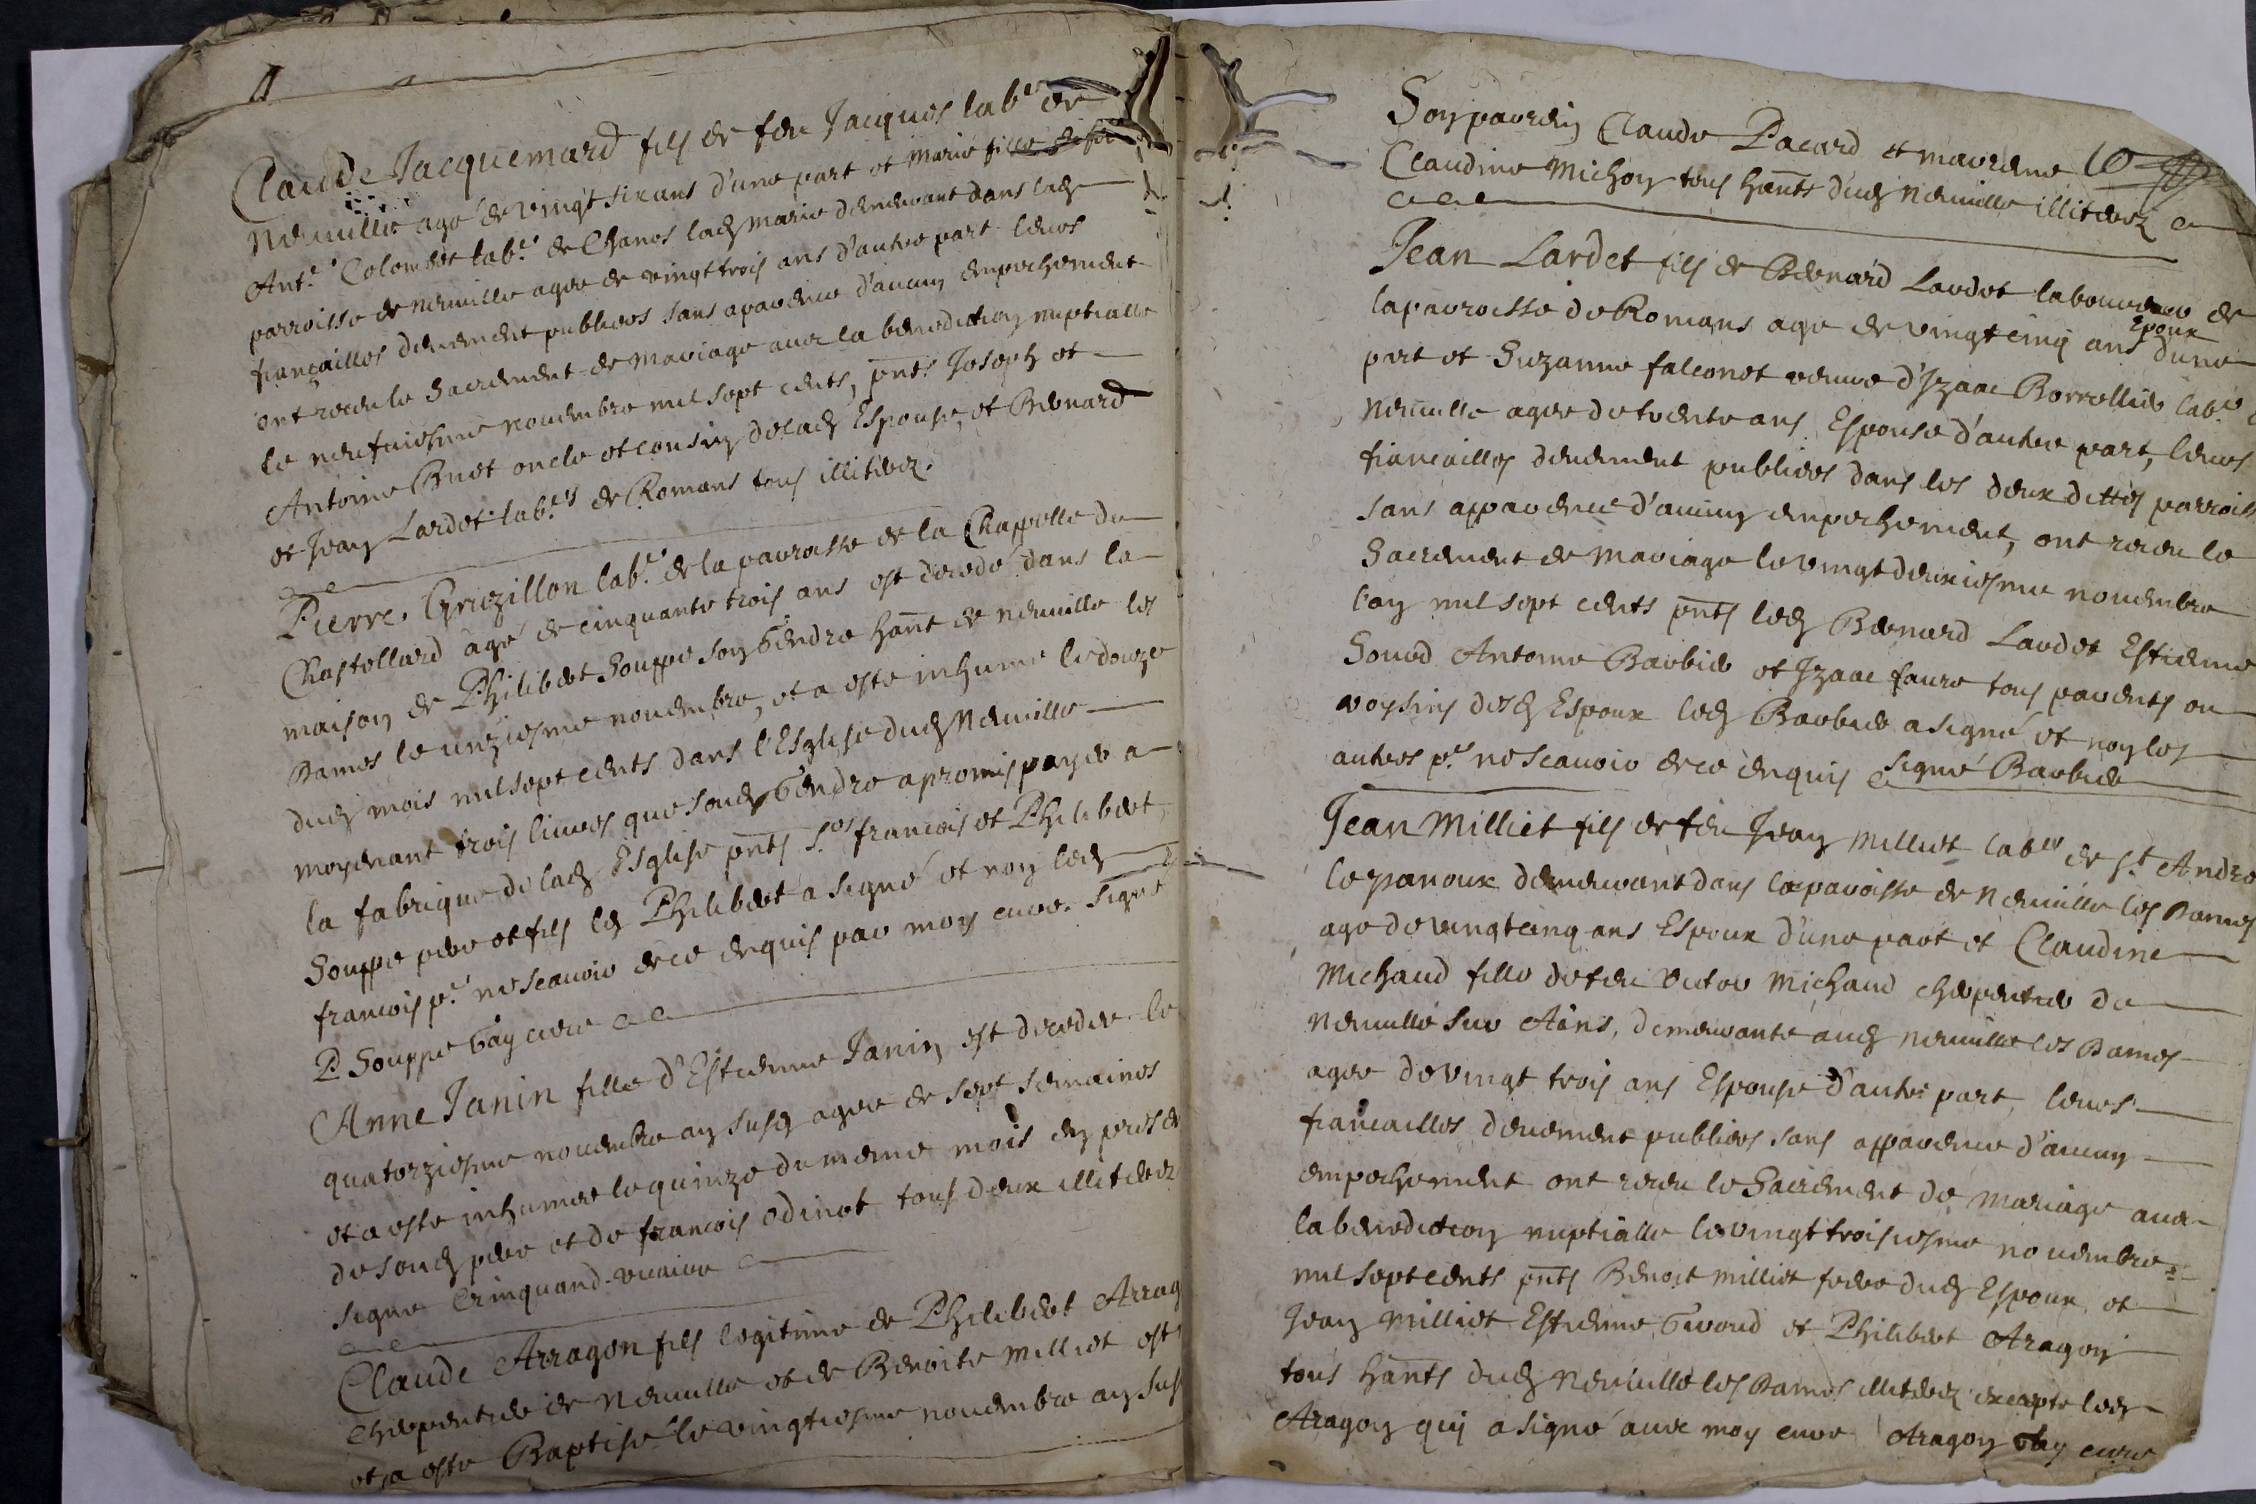 Claude Jacquemard fils de feu Jacques lab.r de
Neuville agé de vingt six ans d'une part et Marie fille de feu
Ant.e Colombet lab.r de Chanos lad. Marie demeurant dans lad.
parroisse de neuville agee de vingt trois ans d'autre part leurs
fiançailles deuement publiees sans aparence d'aucun empechement
ont receu le Sacrement de Mariage avec la benediction nuptialle
le neufuiesme nouembre mil sept cents, pnts Joseph et
Antoine Buet oncle et cousin de lad. Espouse, et Bernard
et Jean Lardet lab.rs de Romans tous illiterez.
Pierre Griezillon lab.r de la parroisse de la Chappelle du
Chastellard agé de cinquante trois ans est decedé dans la
maison de Philibert Souppe son Gendre hant de neuville les
Dames le unziesme nouembre, et a esté inhumé le douze
dud. mois mil sept cents dans l'Esglise dud. Neuville
moyenant trois liures que soud. Gendre a promis payer a
la fabrique de lad. Esglise pnts S.rs francois et Philibert
Souppe pere et fils led. Philibert a signé et non led.
francois p.r ne scauoir de ce enquis par moy curé. Signé
P. Souppe Gay curé
Anne Janin fille d'Estienne Janin est decedee le
quatorziesme nouembre an susd. agee de sept semaines
et a esté inhumee le quinze du meme mois en presence
de soud. pere et de francois Odinet tous deux illiterez
signé Crinquand vicaire
Claude Arragon fils legitime de Philibert Arrag
cherpentier de Neuville et de Benoite Milliet est
et a esté Baptisé le vingtiesme nouembre an sus
Son parrein Claude Pacard et marreine
Claudine Michon tous hants dud. Neuville illiterez
Jean Lardet fils de Bernard Lardet laboureur de
la parroisse de Romans agé de vingt cinq ans Epoux d'une
part et Suzanne falconet veuve d'Izaac Borrellier lab.r
Neuville agee de trente ans Espouse d'autre part, leurs
fiancailles deuement publiees dans les deux dittes parroiss
sans apparence d'aucun empechement, ont receu le
Sacrement de Mariage le vingt deuxiesme nouembre
l'an mil sept cents pnts led. Bernard Lardet Estienne
Sourd Antoine Barbier et Izaac faure tous parents ou
voysins desd. Espoux led. Barbier a signé et non les
autres p.r ne scauoir de ce enquis signé Barbier
Jean Milliet fils de feu Jean Milliet lab.r de S.t André
le panoux demeurant dans la paroisse de Neuville les Dames
agé de vingt cinq ans Espoux d'une part et Claudine
Michaud fille de feu Victor Michaud cherpentier de
Neuville sur Ains, demeurante aud. neuville les Dames
agee de vingt trois ans Espouse d'autre part, leurs
fiancailles deuement publiees sans apparence d'aucun
empechement ont receu le Sacrement de Mariage auec
la benediction nuptialle le vingt troisiesme nouembre
mil sept cents pnts Benoit Milliet frere dud. Espoux, et
Jean Milliet Estienne Giroud et Philibert Aragon
tous hants dud. Neuville les Dames illiterez excepté led.
Aragon qui a signé auec moy curé Aragon Gay curé